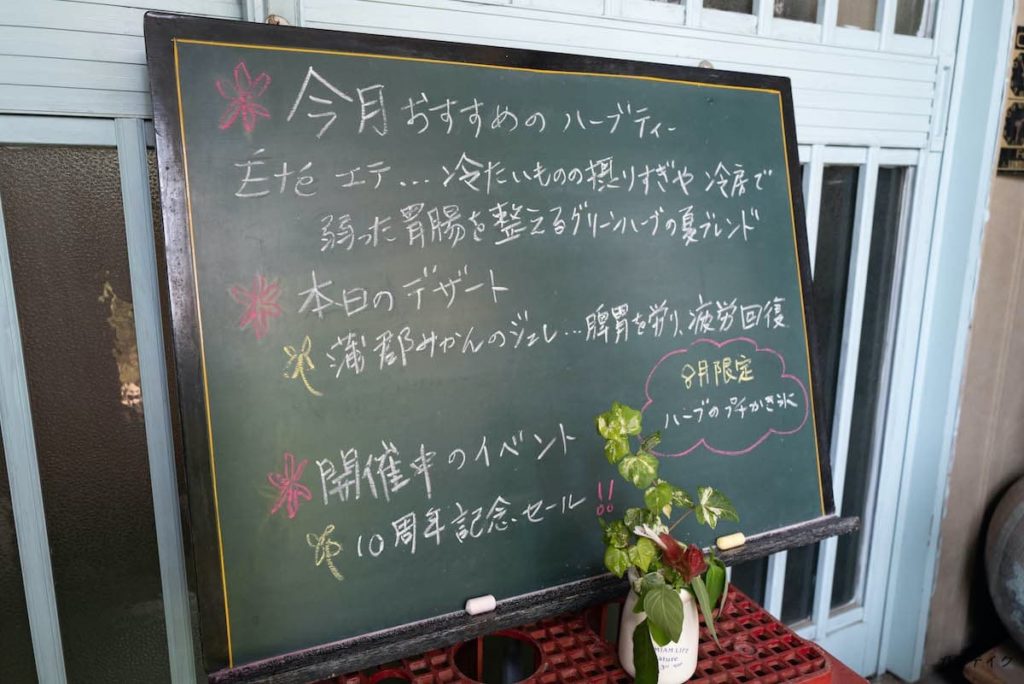 今月おすすめのハーブティー
Été エテ…冷たいものの摂りすぎや冷房で
弱った胃腸を整えるグリーンハーブの夏ブレンド
本日のデザート
蒲郡みかんのジュレ…脾胃を労り、疲労回復
8月限定
ハーブのプチかき氷
開催中のイベント
10周年記念セール!!
MIAM LIFE